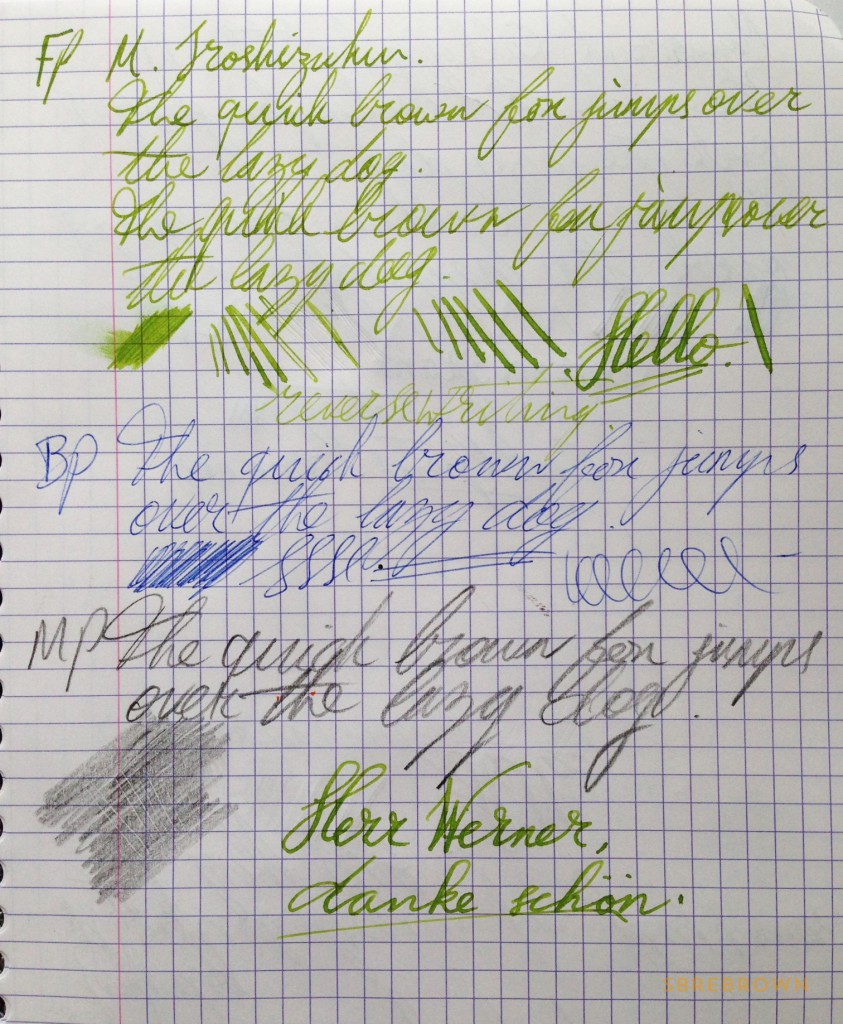 FP M. Iroshizuku.
The quick brown fox jumps over
the lazy dog.
The quick brown fox jumps over
the lazy dog.
Hello.
reverse writing
BP The quick brown fox jumps
over the lazy dog.
ssss.
MP The quick brown fox jumps
over the lazy dog.
Herr Werner,
danke schön.
SBREBROWN